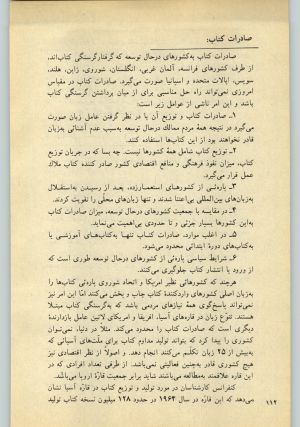 صادرات کتاب:
صادرات کتاب به‌کشورهای درحال توسعه که گرفتارگرسنگی کتاب‌اند،
از طرف کشورهای فرانسه، آلمان غربی، انگلستان، شوروی، ژاپن، هلند،
سویس، ایالات متحده و اسپانیا صورت می‌گیرد. صادرات کتاب در مقیاس
امروزی نمی‌تواند راه حل مناسبی برای از میان برداشتن گرسنگی کتاب
باشد و این امر ناشی از عوامل زیر است:
۱ـ صادرات کتاب و توزیع آن با در نظر گرفتن عامل زبان صورت
می‌گیرد در نتیجه همهٔ مردم ممالک درحال توسعه به‌سبب عدم آشنائی به‌زبان
قادر نخواهند بود از این کتاب‌ها استفاده کنند.
۲ـ توزیع کتاب شامل همهٔ کشورها نیست. چه بسا که در جریان توزیع
کتاب، میزان نفوذ فرهنگی و منافع اقتصادی کشور صادر کننده کتاب ملاک
عمل قرار می‌گیرد.
۳ـ پاره‌ئی از کشورهای استعمارزده، بعد از رسیدن به‌استقلال
به‌زبان‌های بین‌المللی بی‌اعتنا شدند و تنها زبان‌های محلّی را تقویت کردند.
۴ـ در مقایسه با جمعیت کشورهای درحال توسعه، میزان صادرات کتاب
به‌این کشورها بسیار جزئی و تا حدودی بی‌اهمیت می‌نماید.
۵ـ در اغلب موارد، صادرات کتاب تنها به‌کتاب‌های آموزشی یا
به‌کتاب‌های دورهٔ ابتدائی محدود می‌شود.
۶ـ شرایط سیاسی پاره‌ئی از کشورهای درحال توسعه طوری است که
از ورود یا انتشار کتاب جلوگیری می‌کنند.
هرچند که کشورهائی نظیر امریکا و اتحاد شوروی پاره‌ئی کتاب‌ها را
به‌زبان اصلی کشورهای واردکنندهٔ کتاب چاپ و پخش می‌کنند امّا این امر نیز
نمی‌تواند پاسخ‌گوی همهٔ نیازهای مردمی باشد که به‌گرسنگی کتاب مبتلا
هستند. تنوّع زبان در قاره‌های آسیا، افریقا و امریکای لاتین عامل بازدارندهٔ
دیگری است که صادرات کتاب را محدود می‌کند. مثلاً در دنیا، نمی‌توان
کشوری را پیدا کرد که بتواند تولید مداوم کتاب برای ملّت‌های آسیائی که
به‌بیش از ۲۵ زبان تکلّم می‌کنند انجام دهد. و اصولاً از نظر اقتصادی نیز
هیچ کشوری قادر به‌چنین فعالیتی نمی‌باشد. از طرفی تعداد افرادی که در
این قاره علاقمند به‌مطالعه می‌باشند شاید از جمعیت قارّهٔ اروپا می‌باشد.
کنفرانس کارشناسان در مورد تولید و توزیع کتاب در قارهٔ آسیا نشان
می‌دهد که این قارّه در سال ۱۹۶۴ در حدود ۱۲۸ میلیون نسخه کتاب تولید
۱۱۲